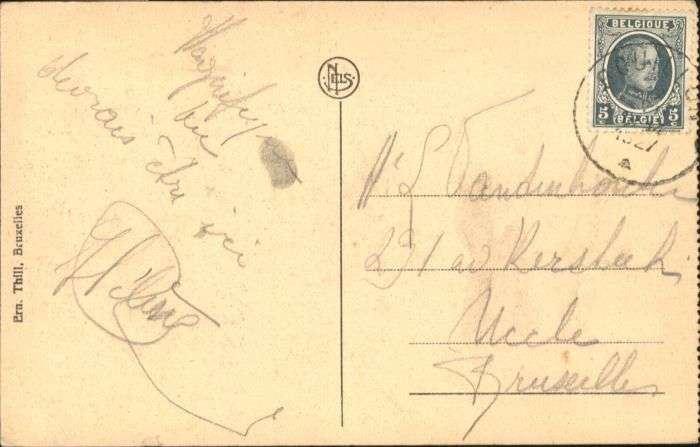 Magnifique
tu
devrais être ici
NELS
Ern. Thill, Bruxelles
BELGIQUE
5 5
BELGIË
1927
Mr L Vandenhoute
291 av Kersbeek
Uccle
Bruxelles